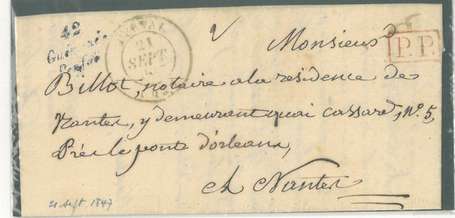 42
21
SEPT
Monsieur
P.P.
Billot, notaire a la residence de
Nantes, y demeurent quai cassard, No. 5,
Près le ponte d'orleans,
à Nantes
21 Sept 1847